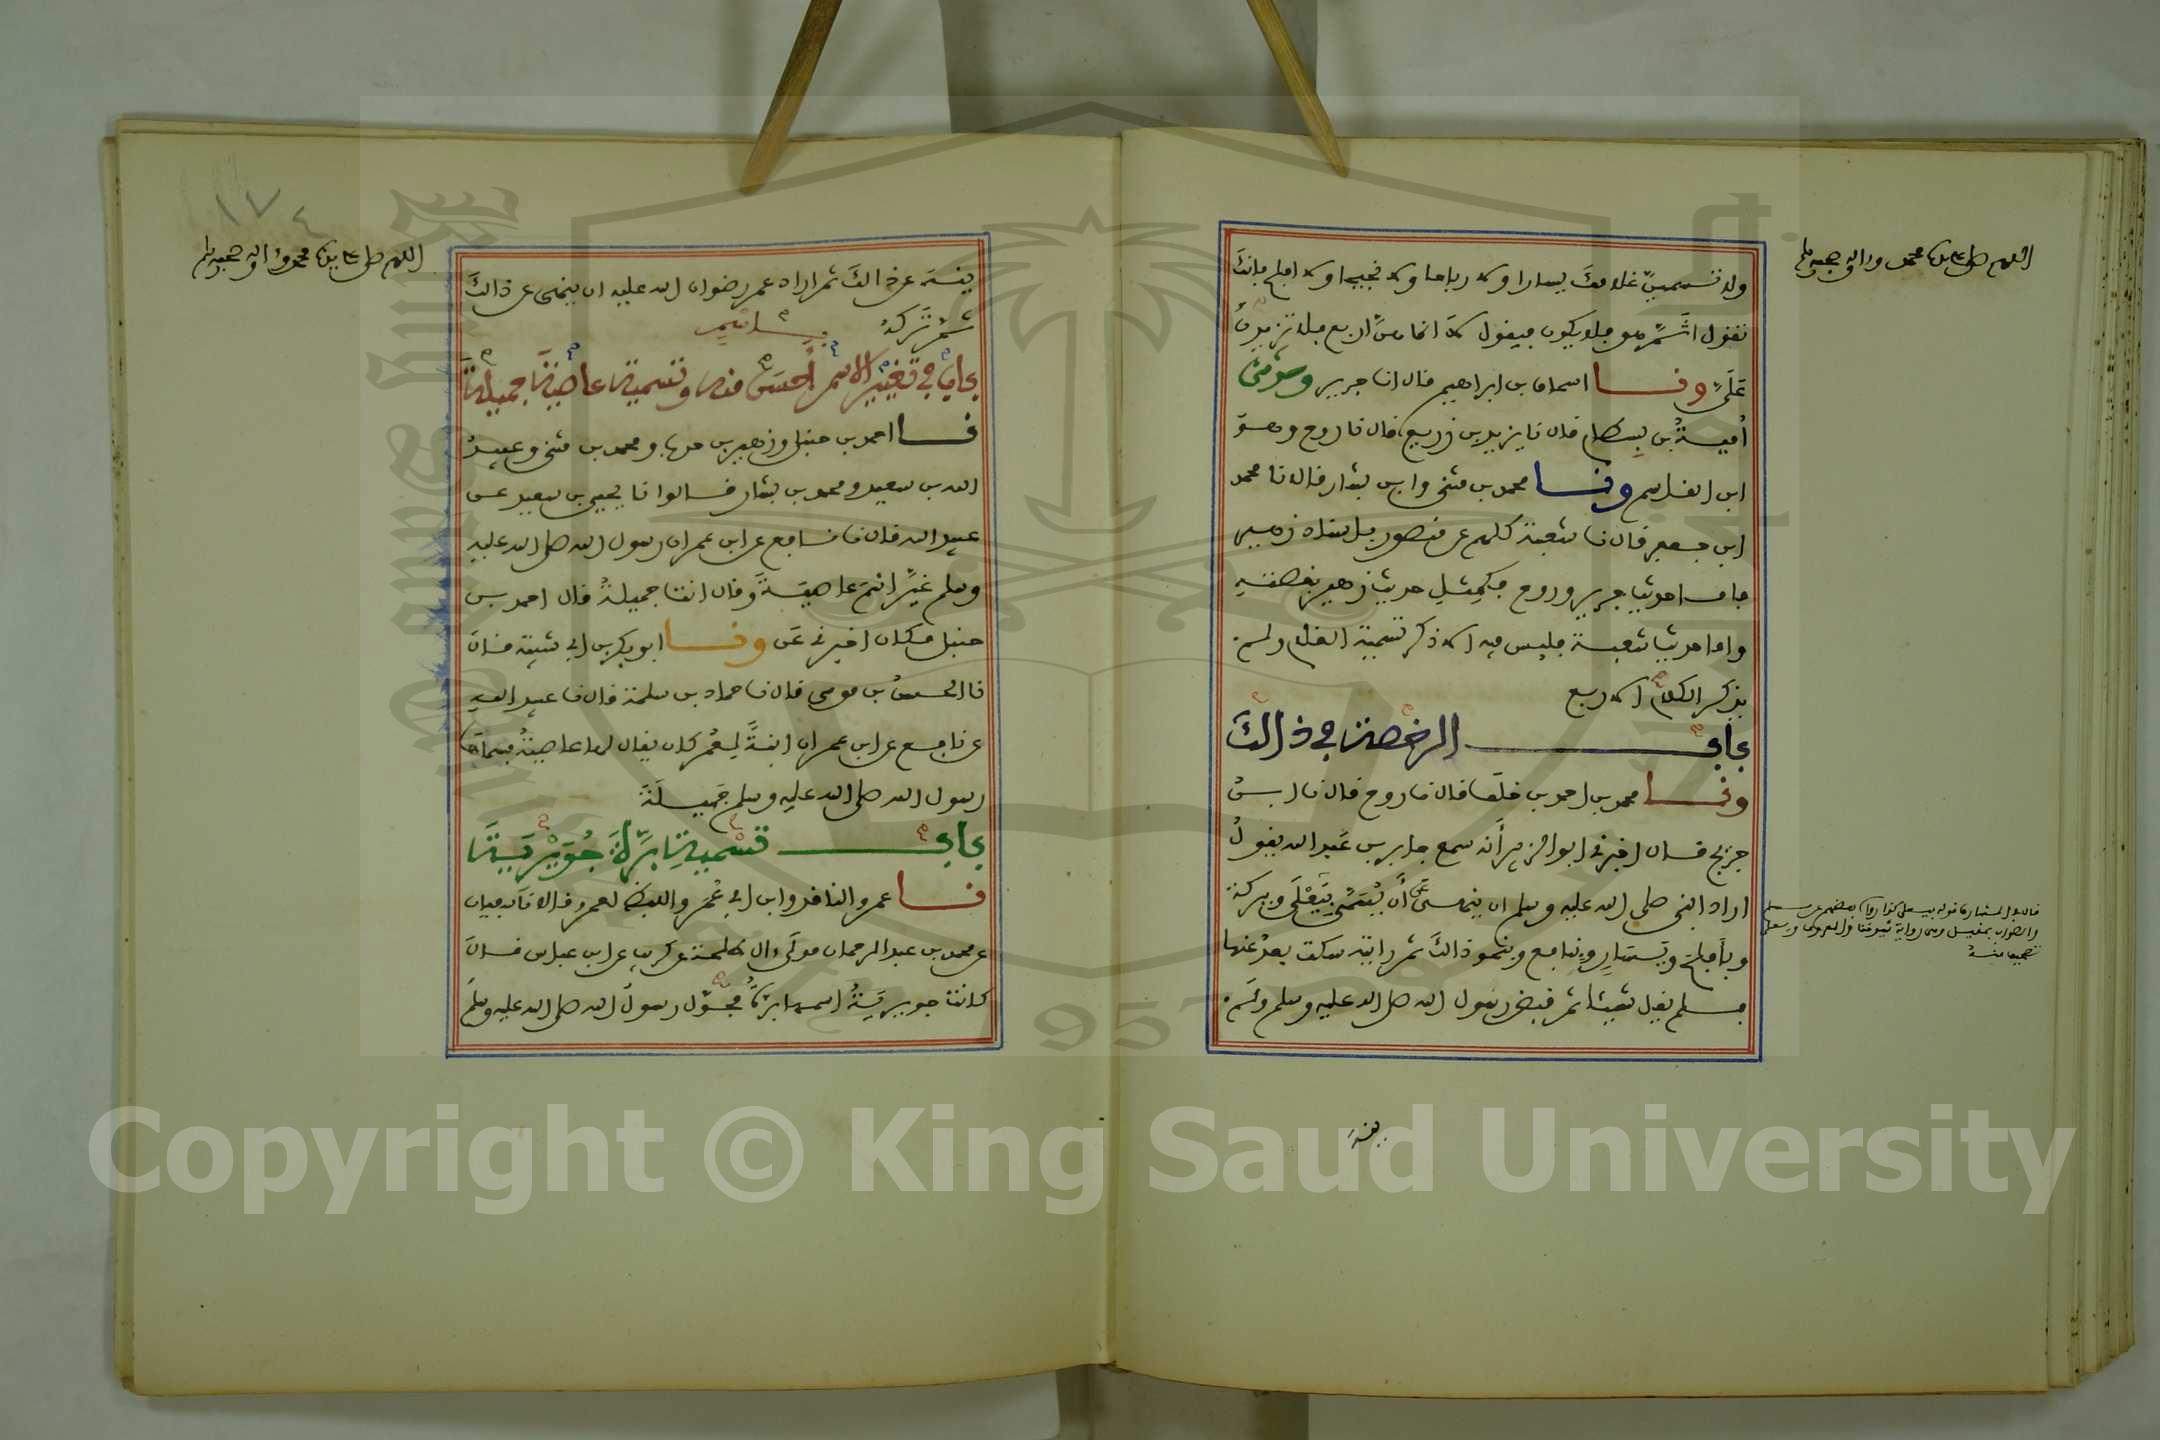 اللهم صل على سيدنا محمد وءاله وصحبه وسلم
ولا تسمين غلامك يسارا ولا رباحا ولا نجيحا ولا افلح فإنك
تقول اثم هو فلا يكون فيقول لا انما هن اربع فلا تزيدن
علي ونا اسحاق بن ابراهيم قال انا جرير وحدثني
أمية بن بسطام قال نا يزيد بن زريع قال نا روح وهو
ابن القاسم ونا محمد بن مثنى وابن بشار قالا نا محمد
ابن جعفر قال نا شعبة كلهم عن منصور بإسناد زهير
فاما حديث جرير وروح فكمثل حديث زهير بقصته
واما حديث شعبة فليس فيه الا ذكر تسمية الغلام ولم
يذكر الكلام الاربع
باب الرخصة في ذالك
ونا محمد بن احمد بن خلف قال نا روح قال نا ابن
جريج قال اخبرني ابو الزبير أنه سمع جابر بن عبد الله يقول
اراد النبي صلى الله عليه وسلم ان ينهى عن أن يسمى بيعلى وببركة
وبأفلح وبيسار وبنافع وبنحو ذالك ثم رايته سكت بعد عنها
فلم يقل شيئا ثم قبض رسول الله صلى الله عليه وسلم ولم
ينه
اللهم صل على سيدنا محمد وءاله وصحبه وسلم
١٧٤
ينه عن ذالك ثم اراد عمر رضوان الله عليه ان ينهى عن ذالك
ثم تركه
باب في تغيير الاسم بأحسن منه وتسمية عاصية جميلة
نا احمد بن حنبل وزهير بن حرب ومحمد بن مثنى وعبيد
الله بن سعيد ومحمد بن بشار قالوا نا يحيى بن سعيد عن
عبيد الله قال نا نافع عن ابن عمر ان رسول الله صلى الله عليه
وسلم غير اسم عاصية وقال انت جميلة قال احمد بن
حنبل مكان اخبرني عن ونا ابو بكر بن ابي شيبة قال
نا الحسن بن موسى قال نا حماد بن سلمة قال نا عبيد الله
عن نافع عن ابن عمر ان ابنة لعمر كان يقال لها عاصية فسماها
رسول الله صلى الله عليه وسلم جميلة
باب تسمية برة جويرية
نا عمرو الناقد وابن ابي عمر واللفظ لعمرو قالا نا سفيان
عن محمد بن عبد الرحمان مولى ءال طلحة عن كريب عن ابن عباس قال
كانت جويرية اسمها برة فحول رسول الله صلى الله عليه وسلم